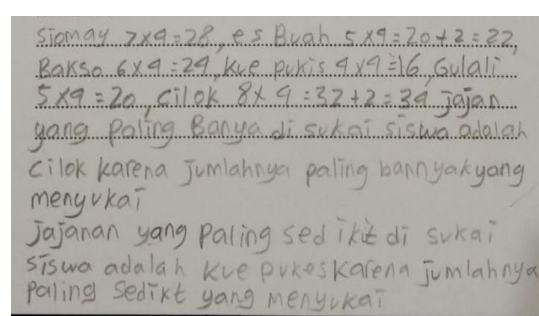 Siomay 7x4=28, es Buah 5x4=20+2=22,
Bakso 6x4=24, kue pukis 4x4=16, Gulali
5x4=20, cilok 8x4=32+2=34 jajan
yang paling Banya di sukai siswa adalah
cilok karena jumlahnya paling bannyak yang
menyukai
jajanan yang paling sedikit di sukai
siswa adalah kue pukes karena jumlahnya
paling sedikt yang menyukai